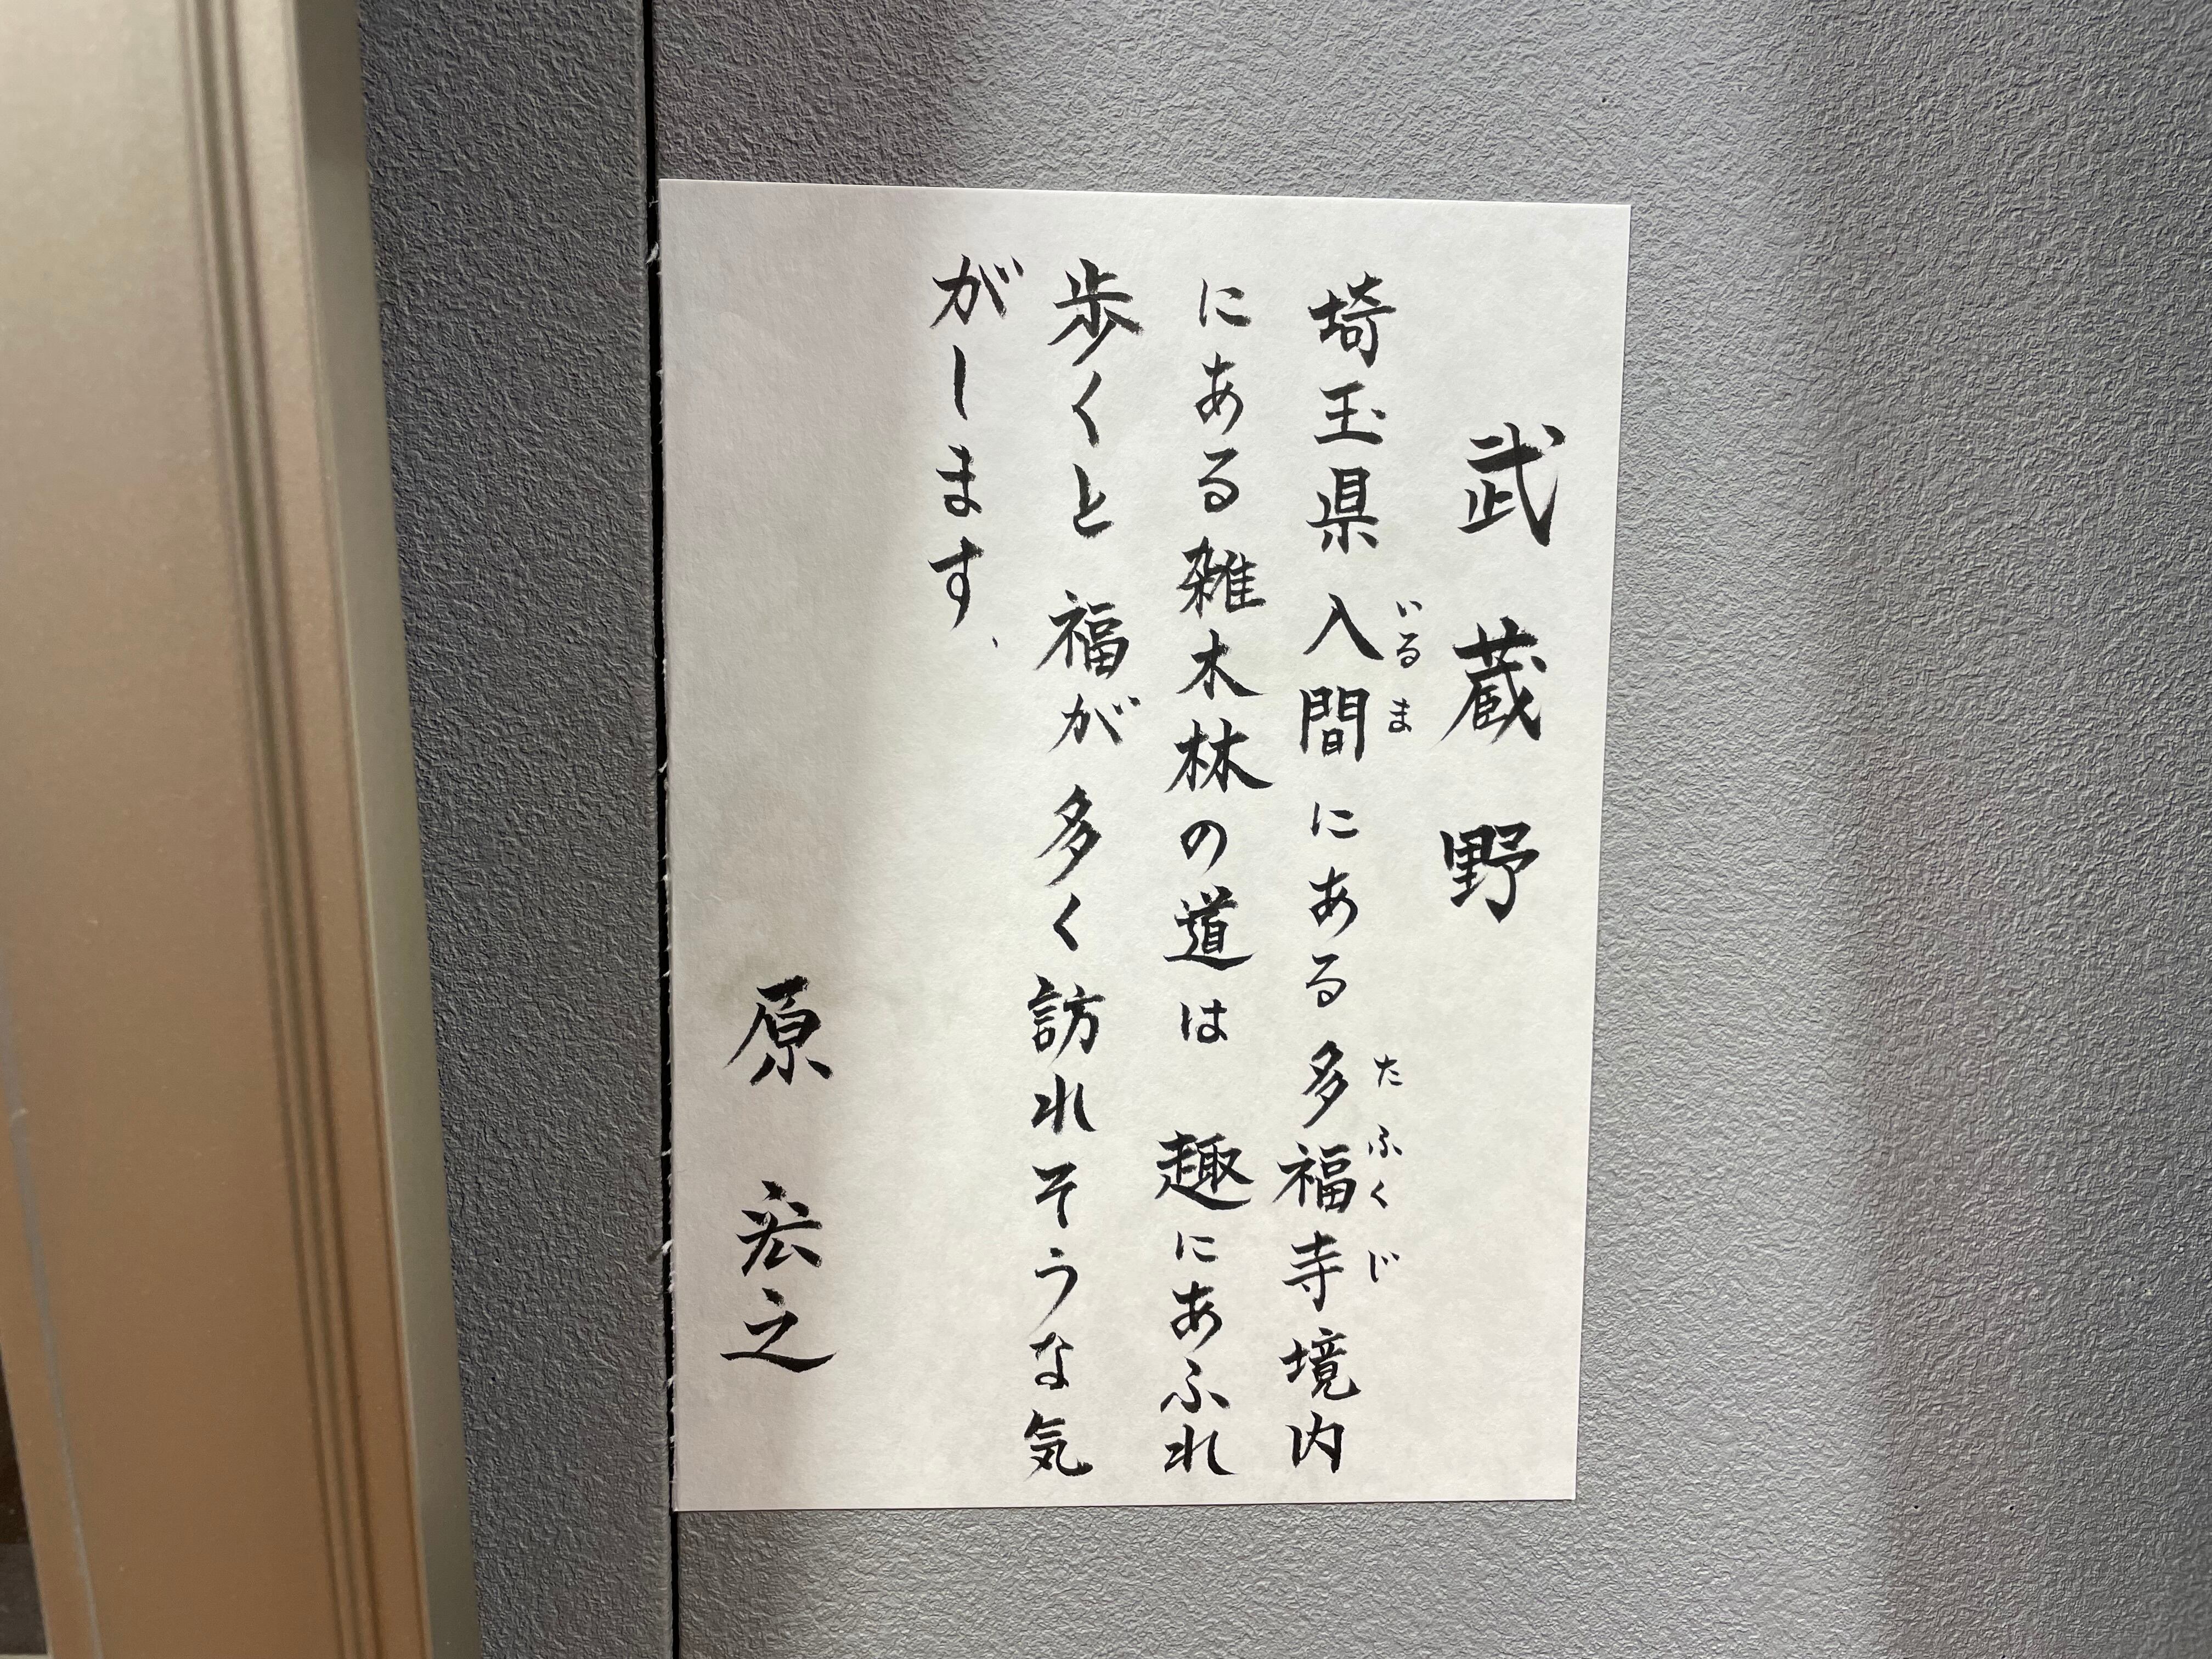 武蔵野
埼玉県入間にある多福寺境内
いるま
たふくじ
にある雑木林の道は 趣にあふれ
歩くと福が多く訪れそうな気
がします、
原 宏之